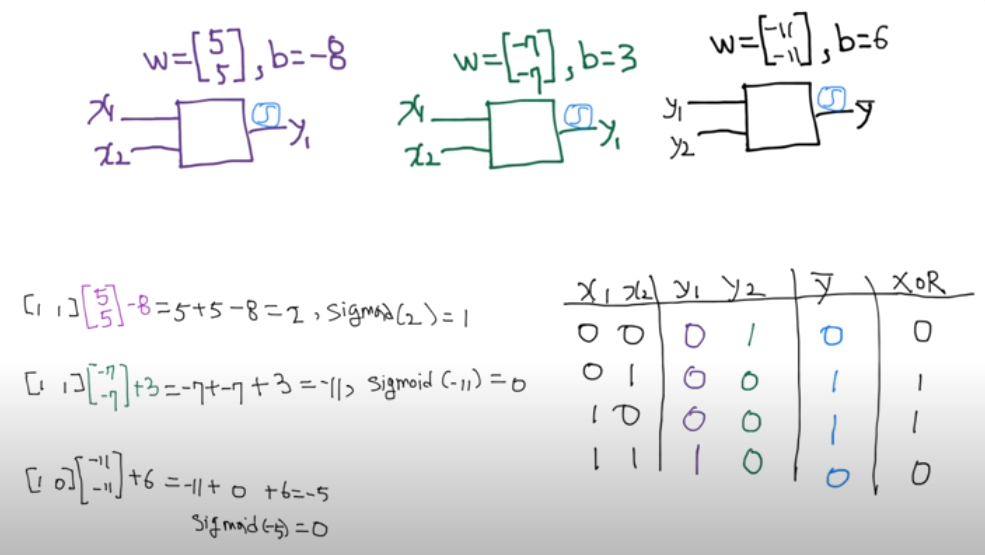 w=[5 5], b=-8
x1
x2
S
y1
w=[-7 -7], b=3
x1
x2
S
y1
w=[-11 -11], b=6
y1
y2
S
y̅
[1 1][5 5]-8=5+5-8=2, Sigmoid(2)=1
[1 1][-7 -7]+3=-7+-7+3=-11, Sigmoid(-11)=0
[1 0][-11 -11]+6=-11+0+6=-5
Sigmoid(-5)=0
x1 x2 y1 y2 y̅ XOR
0 0 0 1 0 0
0 1 0 0 1 1
1 0 0 0 1 1
1 1 1 0 0 0